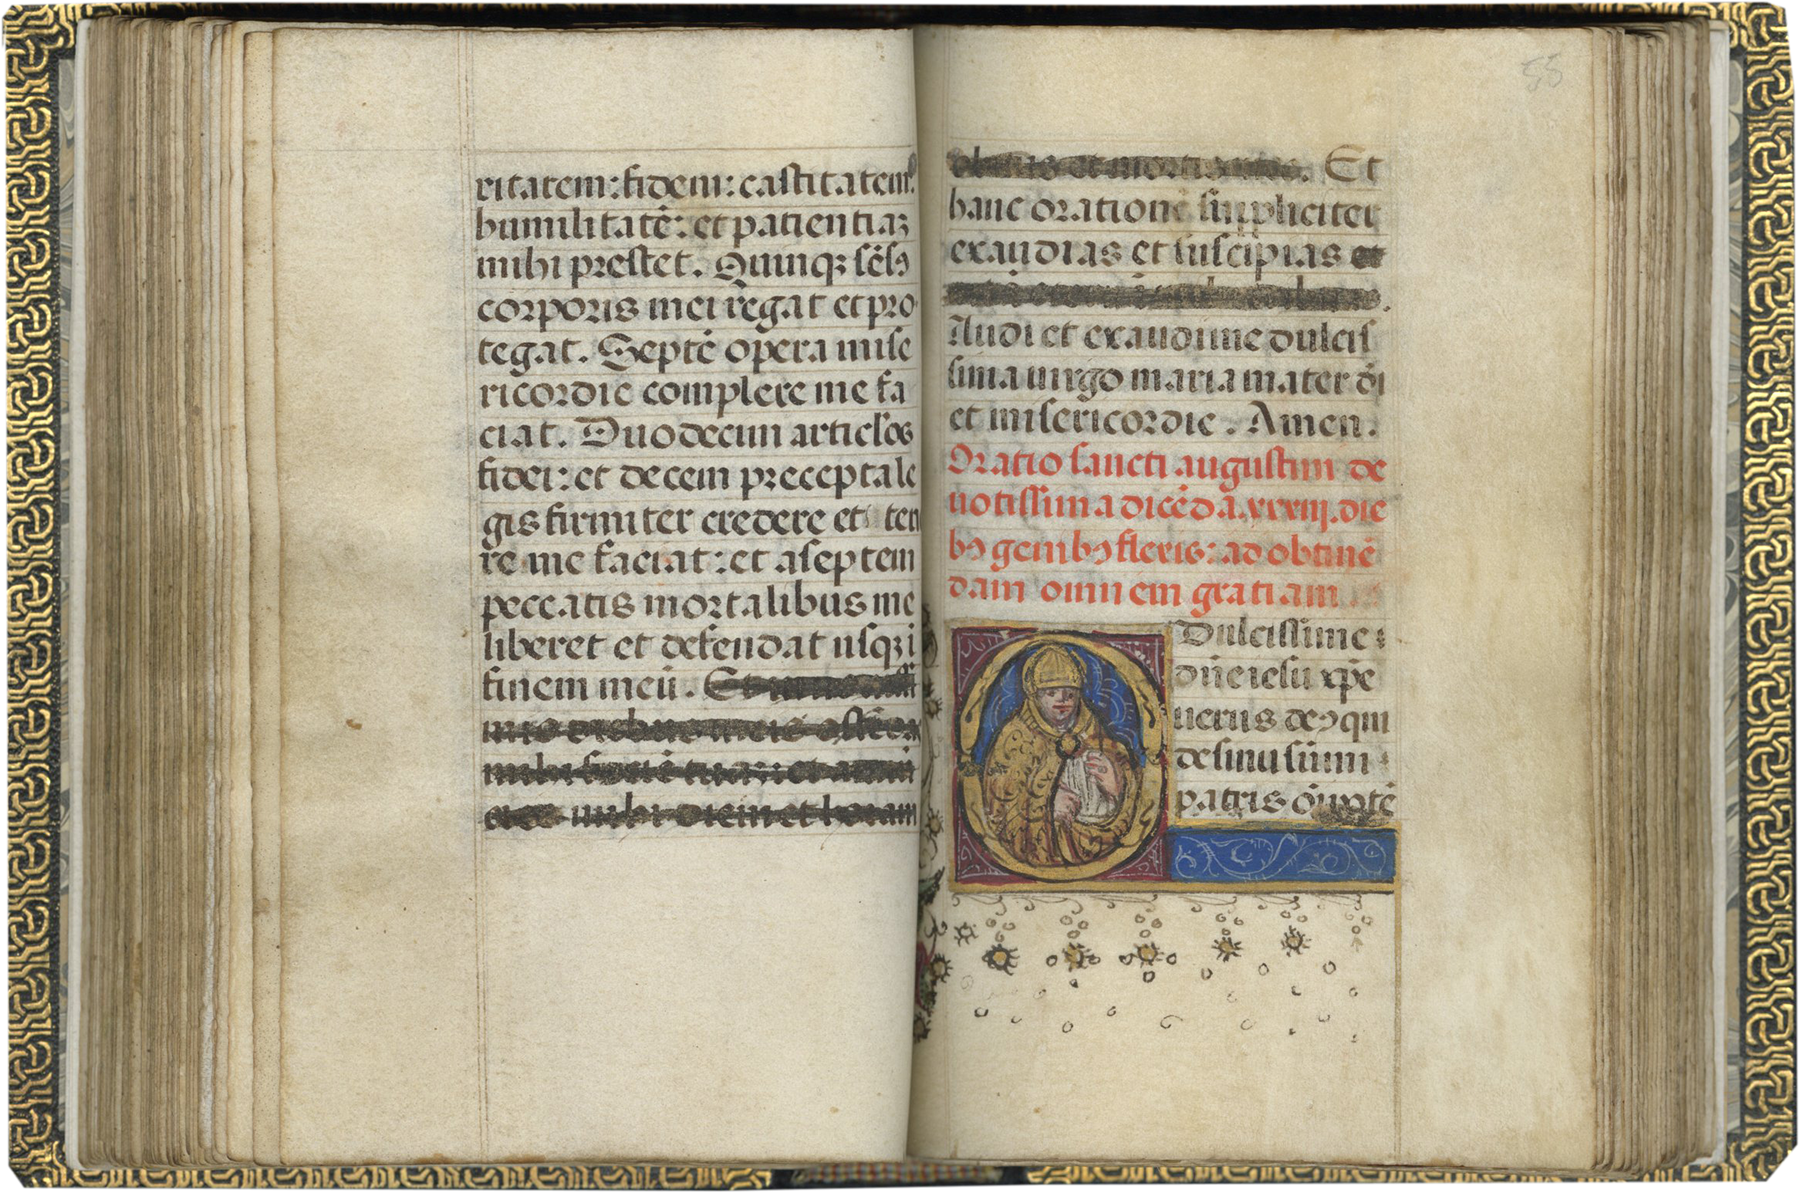 ritatem: fidem: castitatem:
humilitatē: et patientiaꝫ
mihi prestet. Quinqꝫ sēsꝰ
corporis mei regat et pro
tegat. Septē opera mise
ricordie complere me fa
ciat. Duodecim articlos
fidei: et decem precepta le
gis firmiter credere et ten
re me faciat: et a septem
peccatis mortalibus me
liberet et defendat usqꝫ ī
finem meū. Et
mihi
mihi diem et horam
obitus et mortis. Et
hanc orationē suppliciter
exaudias et suscipias et
Audi et exaudi me dulcis
sima uirgo maria mater dī
et misericordie. Amen.
Oratio sancti augustini de
uotissima dicēda xxxiij. die
bꝰ genibꝰ flexis: ad obtinē
dam omnem gratiam
Dulcissime
dn̄e iesu xp̄e
uerus deꝰ qui
de sinu sum̄i
patris om̄ipotē
55